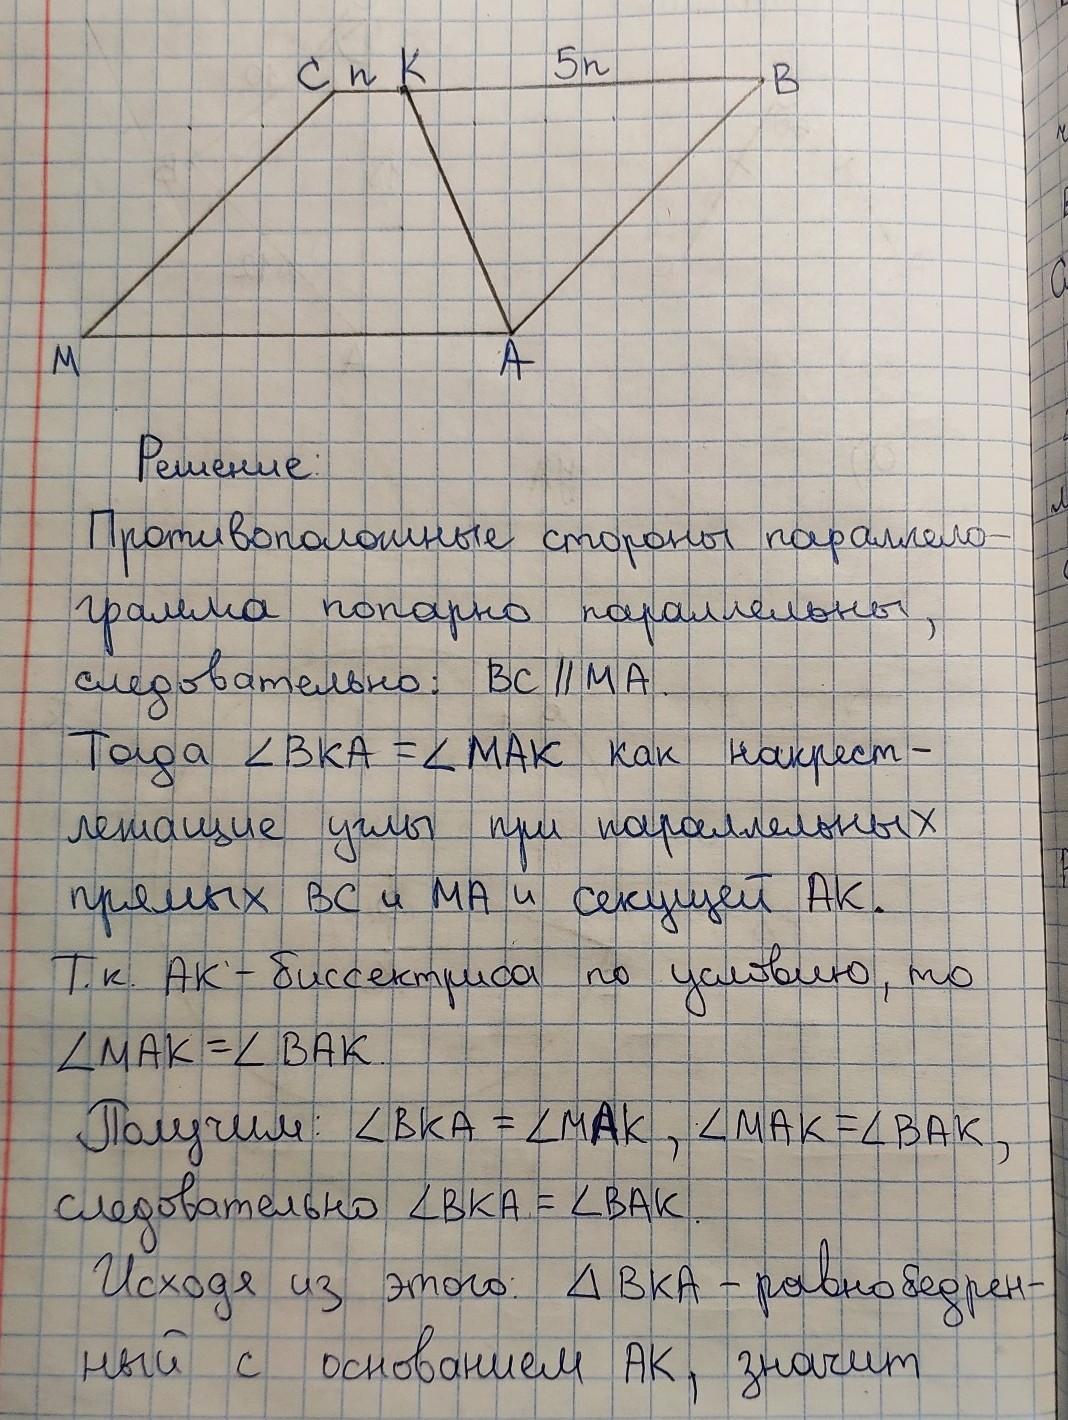 C n K 5n B
M A
Решение:
Противоположные стороны параллело-
грамма попарно параллельны,
следовательно: BC || MA.
Тогда ∠BKA = ∠MAK как накрест-
лежащие углы при параллельных
прямых BC и MA и секущей AK.
Т.к. AK - биссектриса по условию, то
∠MAK = ∠BAK.
Получим: ∠BKA = ∠MAK, ∠MAK = ∠BAK,
следовательно ∠BKA = ∠BAK.
Исходя из этого: △BKA - равнобедрен-
ный с основанием AK, значит